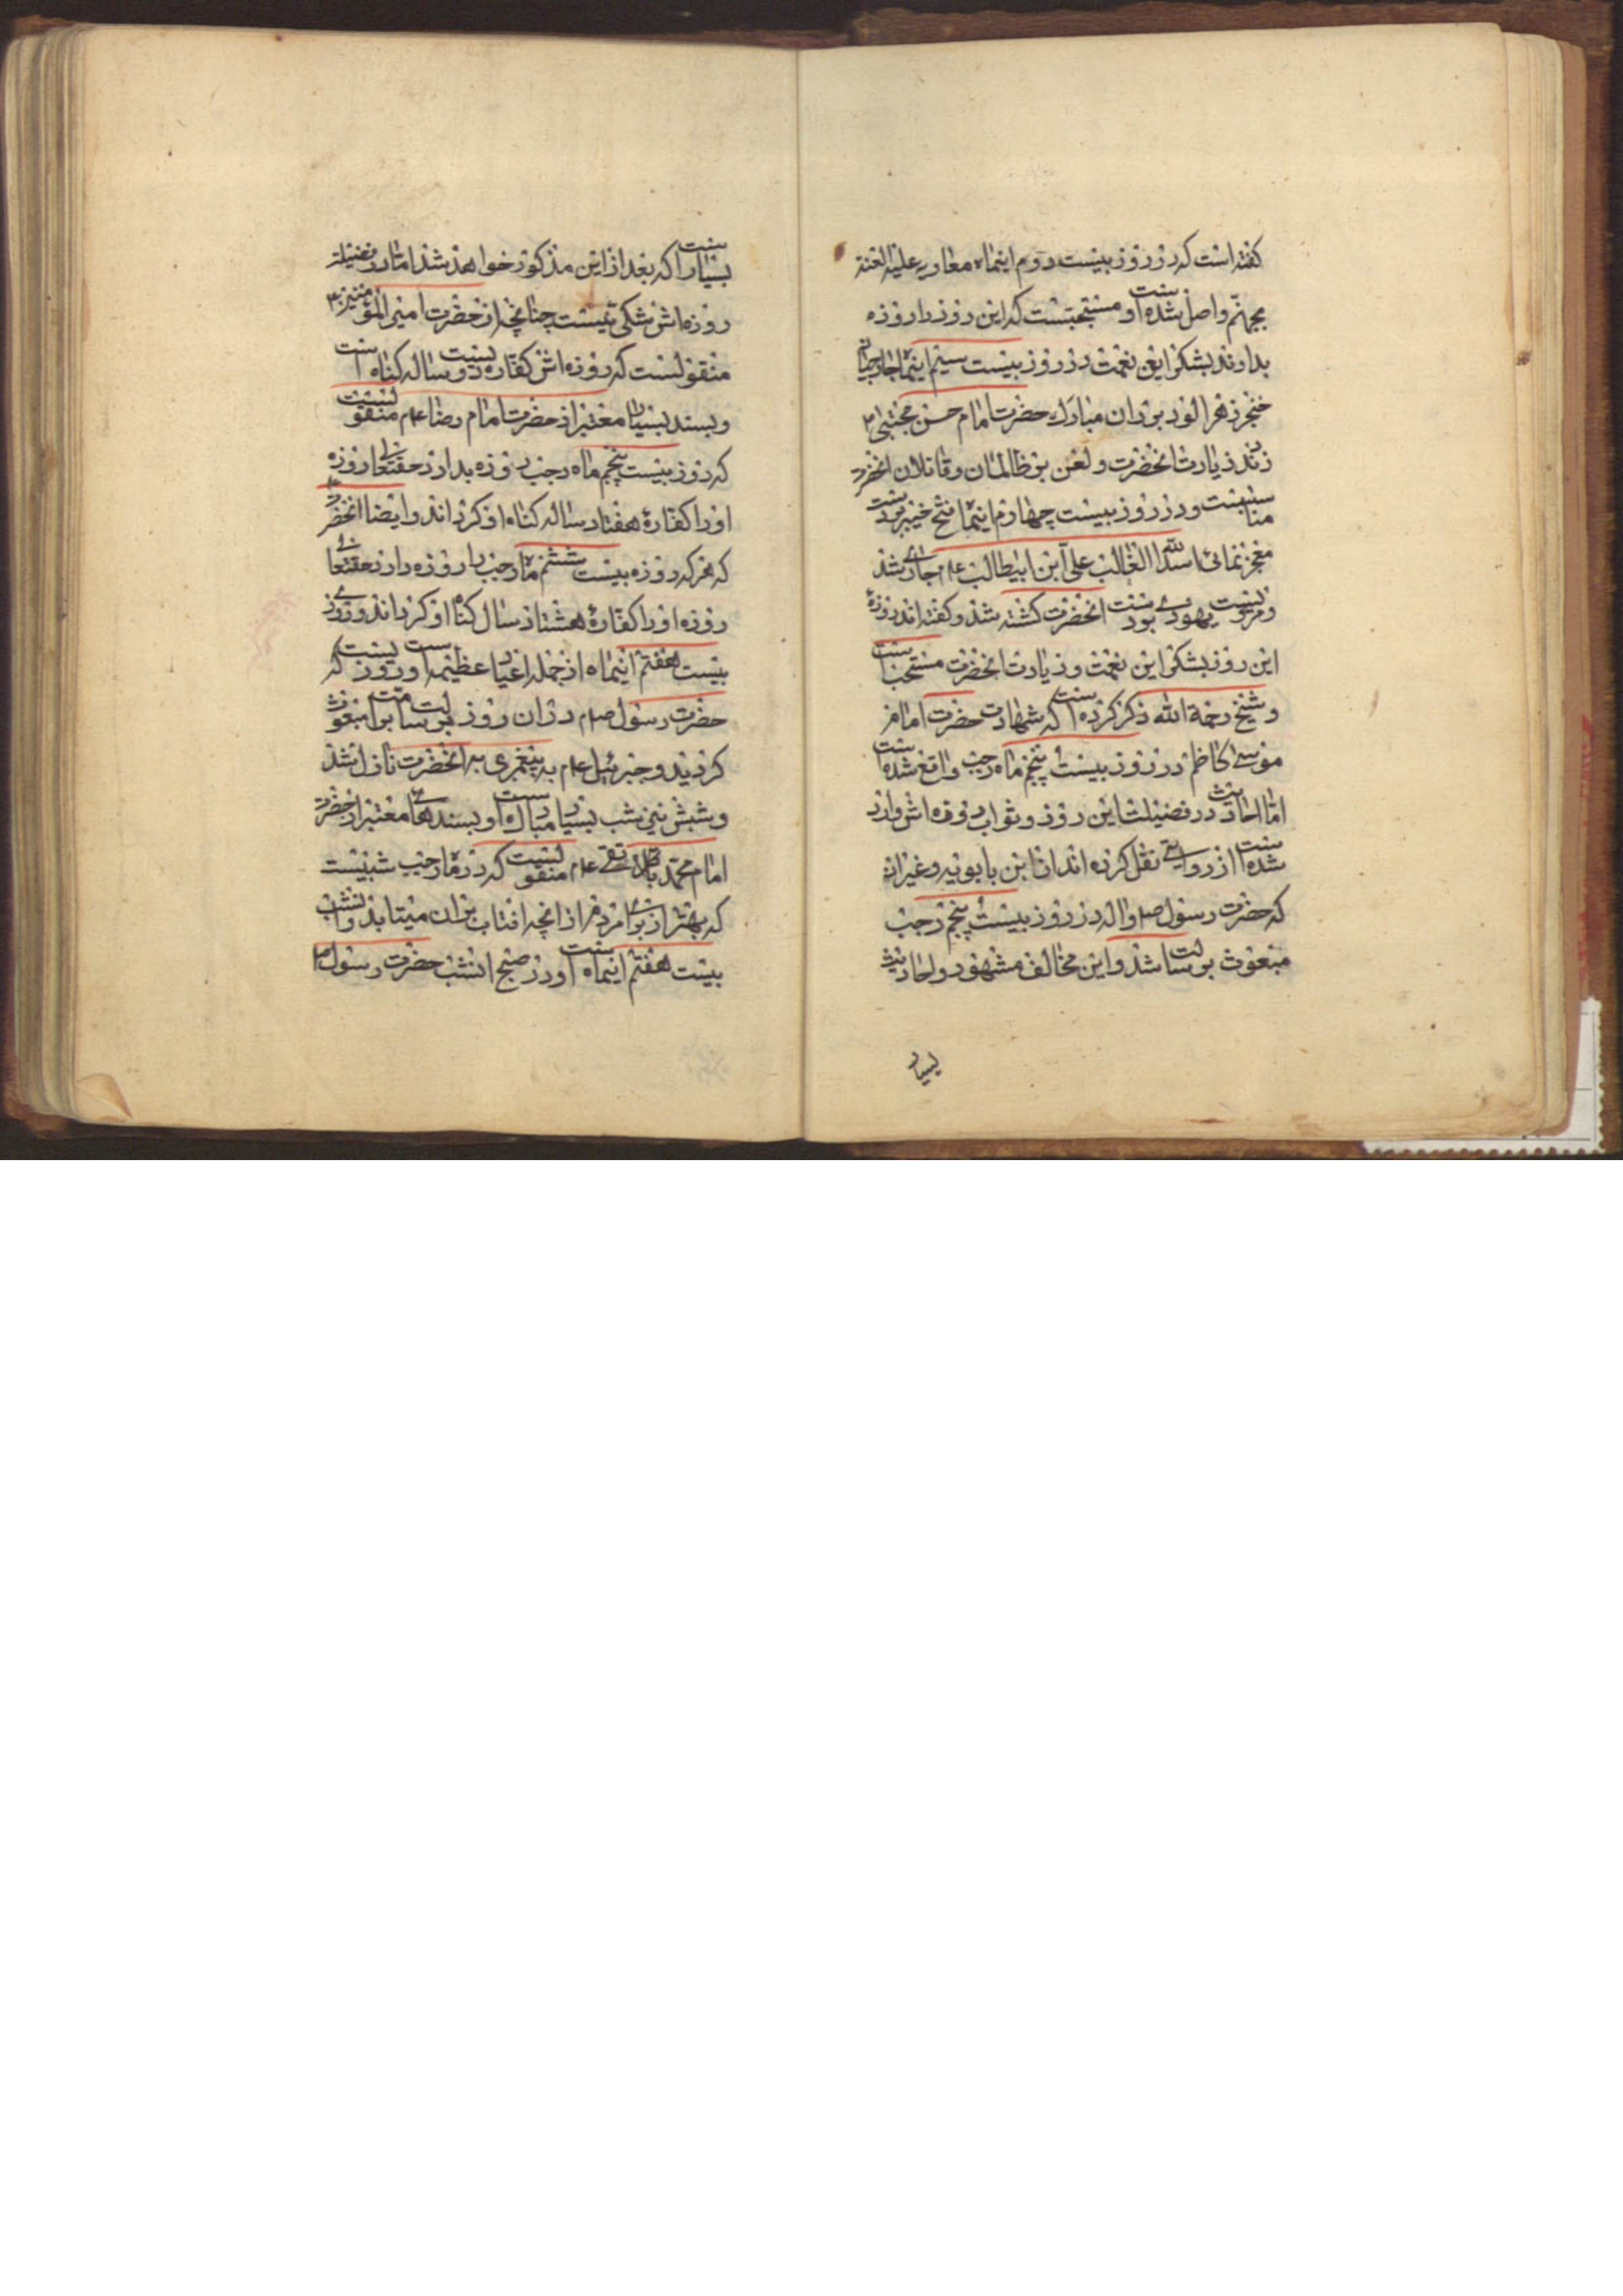 گفته است که در روز بیست دوم اینماه معاویه علیه العنه
بجهنم واصل شده است و مستحبست که این روز را روزه
بدارند بشکر این نعمت در روز بیست سیم اینماه
خنجر زهر الود بر ران مبارک حضرت امام حسن مجتبی ع
زدند زیارت انحضرت و لعن بر ظالمان و قاتلان انحضرت
مناسبست و در روز بیست چهارم اینماه فتح خیبر بر دست
معجز نمائی اسد الله الغالب علی ابن ابیطالب عم جاری شد
و مرحب یهودی بدست انحضرت کشته شد و گفته اند روزهٔ
این روز بشکر این نعمت و زیارت انحضرت مستحبست
و شیخ رحمة الله ذکر کرده است که شهادت حضرت امام
موسی کاظم در روز بیست پنجم ماه رجب واقع شده است
اما احادیث در فضیلت این روز و ثواب روزه اش وارد
شده است از روایتی نقل کرده اند از ابن بابویه و غیر ان
که حضرت رسول ص واله در روز بیست پنجم رجب
مبعوث برسالت شد و این مخالف مشهور و احادیث
بسیار
بسیار است که بعد از این مذکور خواهد شد اما در فضیلت
روزه اش شکی نیست چنانچه از حضرت امیر المؤمنین ع
منقولست که روزه اش کفاره دویست ساله کناه است
و بسند بسیار معتبر از حضرت امام رضا عم منقولست
که روز بیست پنجم ماه رجب روزه بدارد حقتعالی روزه
او را کفارهٔ هفتاد ساله کناه او کرداند و ایضا از انحضرت
که هر که روزه بیست ششم ماه رجب را روزه دارد حقتعالی
روزه او را کفارهٔ هشتاد سال کناه او کرداند و روز
بیست هفتم اینماه از جمله اعیاد عظیمه است و روزیست که
حضرت رسول صم در ان روز برسالت مبعوث
کردید و جبرئیل عم به پیغمبری به انحضرت نازل شد
و شبش نیز شب بسیار مبارک است و بسندهای معتبر از حضرت
امام محمد تقی عم منقولست که در ماه رجب شبیست
که بهتر از برای مردم از انچه افتاب بر ان میتابد و ان شب
بیست هفتم اینماه است و در صبح انشب حضرت رسول ص